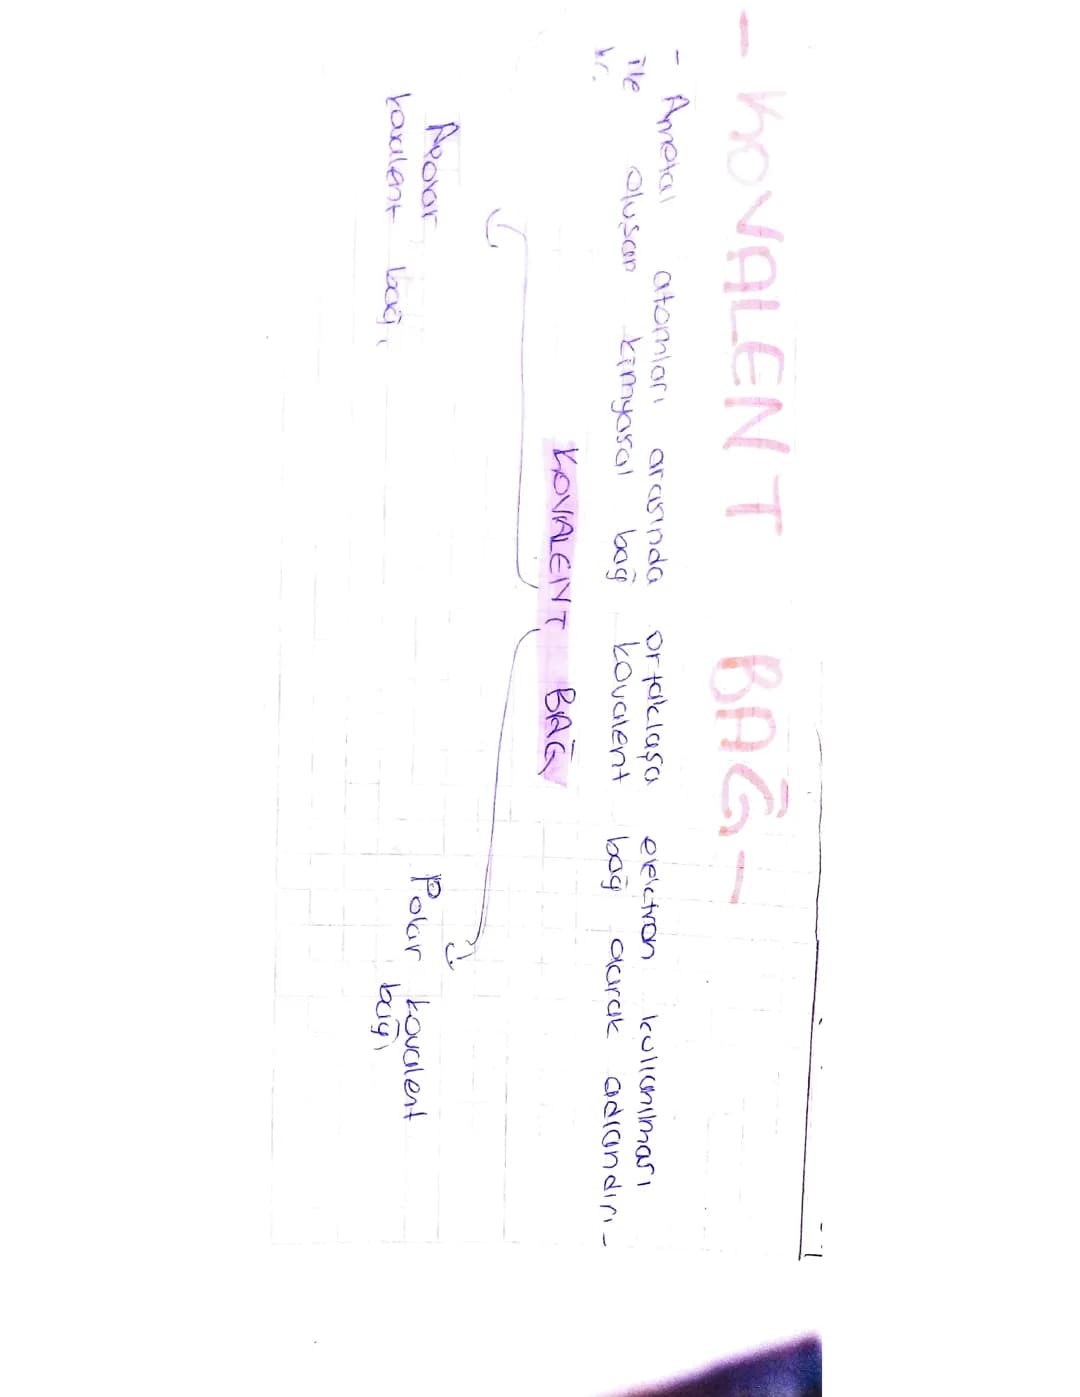 - KOVALENT BAĞ -
- Ametal atomları arasında ortaklaşa elektron kullanılması
ile oluşan kimyasal bağ kovalent bağ olarak adlandırı-
lır.
KOVALENT BAĞ
Apolar
kovalent bağ
Polar kovalent
bağı